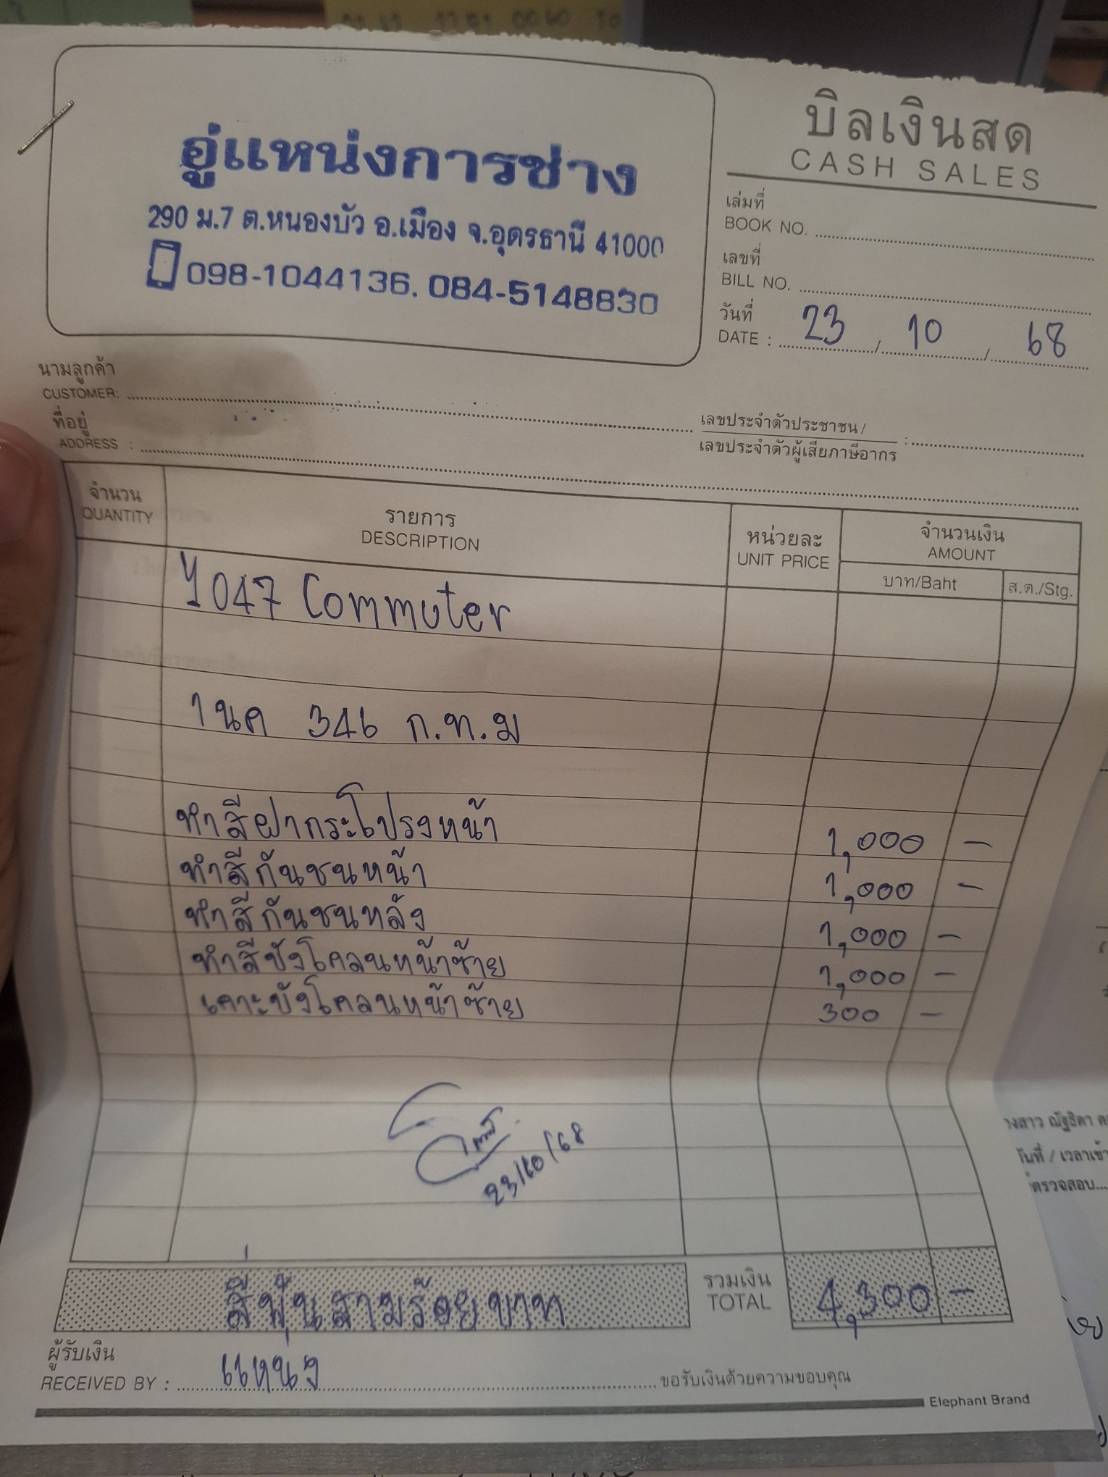 อู่แหน่งการช่าง
290 ม.7 ต.หนองบัว อ.เมือง จ.อุดรธานี 41000
098-1044136, 084-5148830
บิลเงินสด
CASH SALES
เล่มที่
BOOK NO.
เลขที่
BILL NO.
วันที่
DATE : 23 / 10 / 68
นามลูกค้า
CUSTOMER:
ที่อยู่
ADDRESS :
เลขประจำตัวประชาชน /
เลขประจำตัวผู้เสียภาษีอากร :
จำนวน
QUANTITY
รายการ
DESCRIPTION
หน่วยละ
UNIT PRICE
จำนวนเงิน
AMOUNT
บาท/Baht
ส.ต./Stg.
1047 Commuter
1นค 346 ก.ท.ม
ทำสีฝากระโปรงหน้า 1,000 -
ทำสีกันชนหน้า 1,000 -
ทำสีกันชนหลัง 1,000 -
ทำสีบังโคลนหน้าซ้าย 1,000 -
เคาะบังโคลนหน้าซ้าย 300 -
23/10/68
สี่พันสามร้อยบาท
รวมเงิน
TOTAL
4,300 -
ผู้รับเงิน
RECEIVED BY : แหน่ง
ขอรับเงินด้วยความขอบคุณ
Elephant Brand
างสาว ณัฐธิดา
วันที่ / เวลาเข้า
ตรวจสอบ...